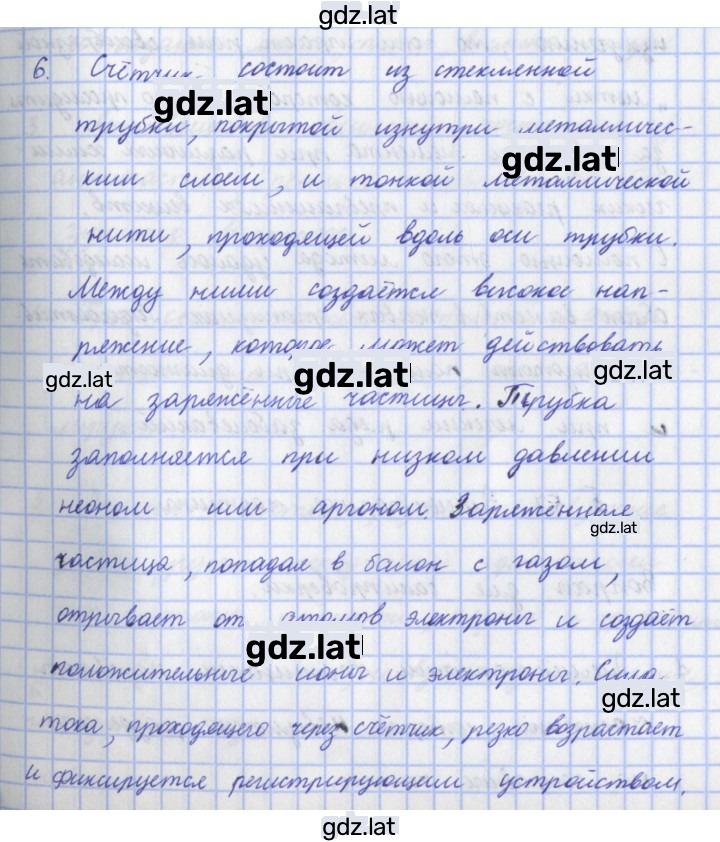 gdz.lat
6. Счётчик состоит из стеклянной
gdz.lat
трубки, покрытой изнутри металличес-
gdz.lat
ким слоем, и тонкой металлической
нити, проходящей вдоль оси трубки.
Между ними создаётся высокое нап-
ряжение, которое может действовать
gdz.lat gdz.lat gdz.lat
на заряжённые частицы. Трубка
заполняется при низком давлении
неоном или аргоном. Заряжённая
gdz.lat
частица, попадая в балон с газом,
отрывает от атомов электроны и создаёт
gdz.lat
положительные ионы и электроны. Сила
gdz.lat
тока, проходящего через счётчик, резко возрастает
и фиксируется регистрирующим устройством.
gdz.lat